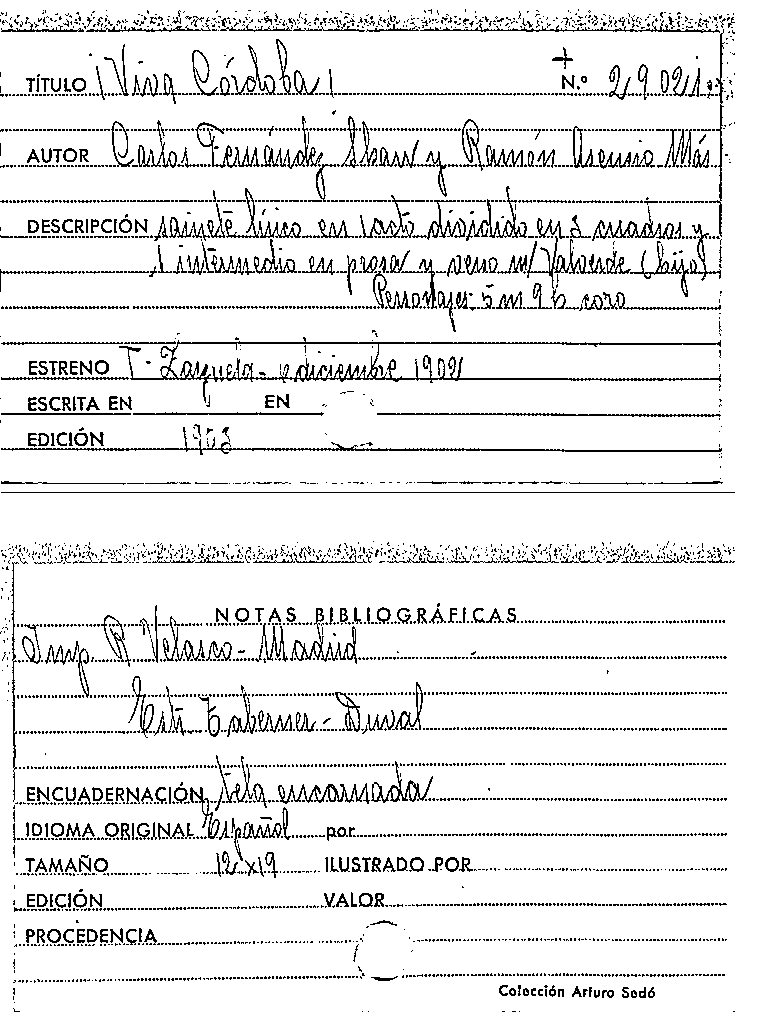 +
TÍTULO ¡Viva Córdoba! N.º 29021
AUTOR Carlos Fernández Shaw y Ramón Asensio Más
DESCRIPCIÓN sainete lírico en 1 acto dividido en 3 cuadros y
1 intermedio en prosa y verso m/ Valverde (hijo)
Personajes: 5 m 9 h coro
ESTRENO T. Zarzuela - 6 diciembre 1902
ESCRITA EN EN
EDICIÓN 1903
NOTAS BIBLIOGRÁFICAS
Imp. R Velasco - Madrid
Estr. Taberner - Duval
ENCUADERNACIÓN tela encarnada
IDIOMA ORIGINAL Español por
TAMAÑO 12x19 ILUSTRADO POR
EDICIÓN VALOR
PROCEDENCIA
Colección Arturo Sedó